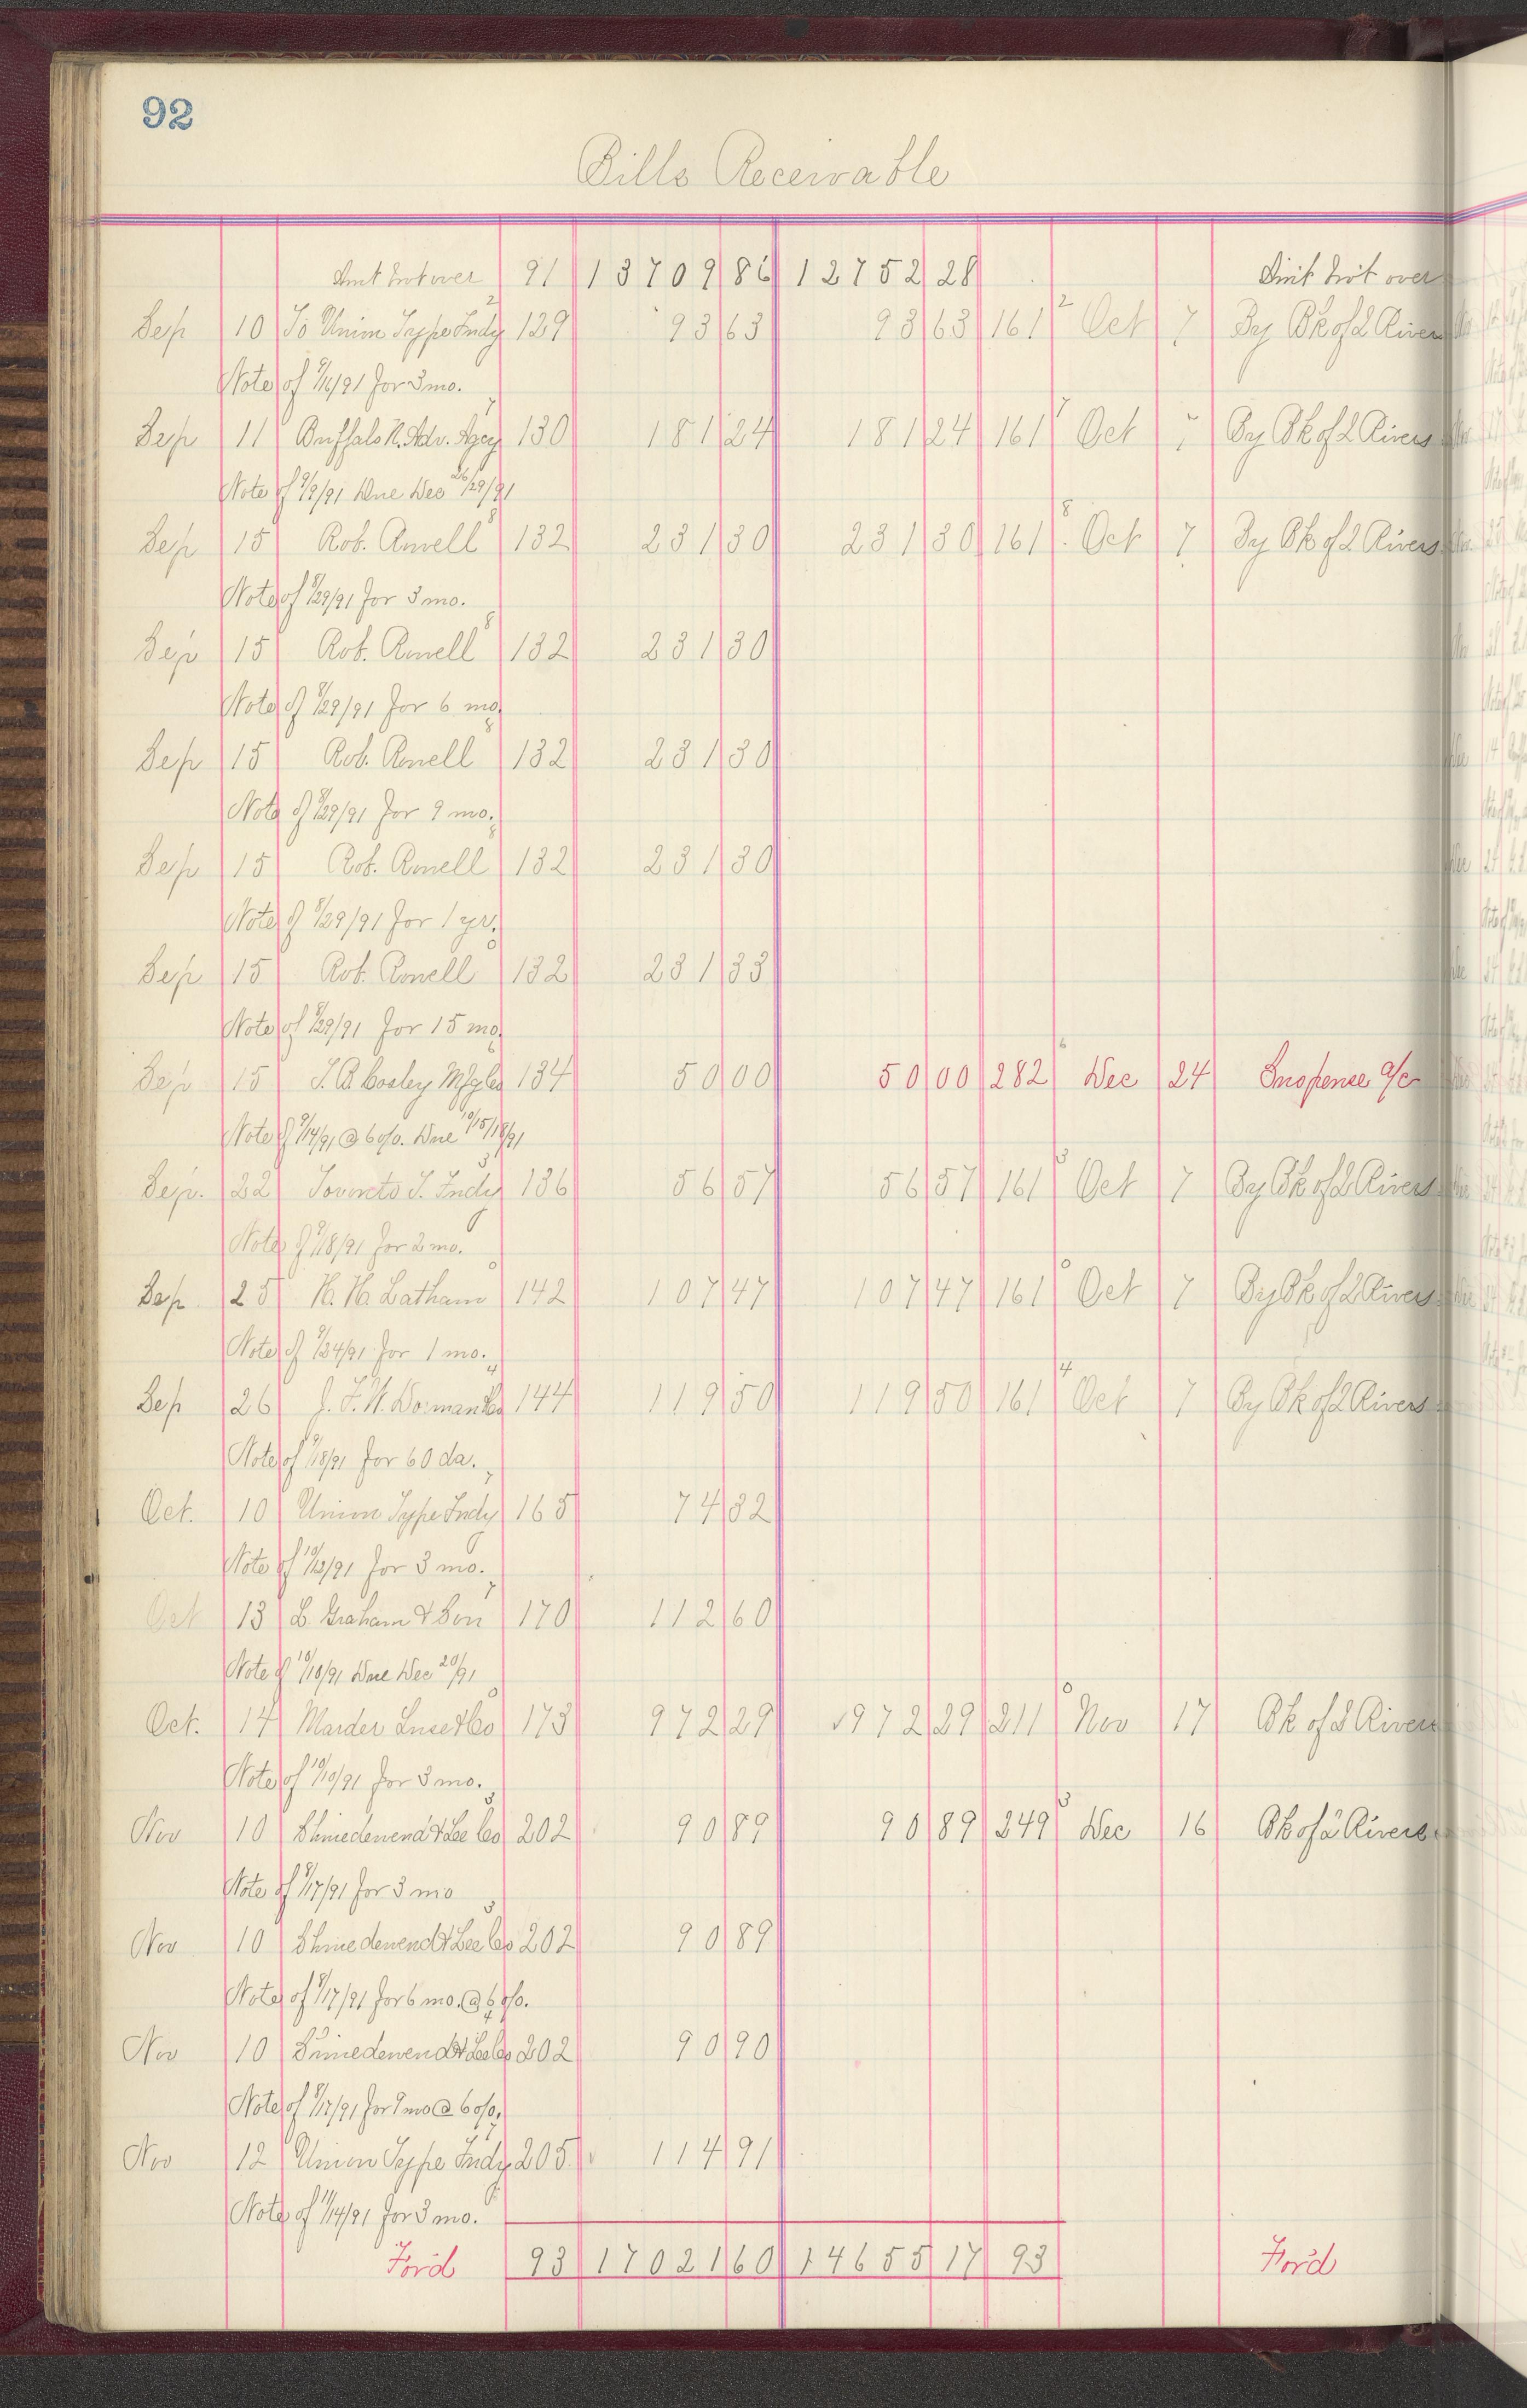 92
Bills Receivable
Amt brot over 91 13709 86 12752 28 Am't bro't over
Sep 10 To Union Type Fndy 129 93 63 93 63 161 Oct 7 By Bk of 2 Rivers
Note of 9/1/91 for 3 mo.
Sep 11 Buffalo R. Adv. Agcy 130 181 24 181 24 161 Oct 7 By Bk of 2 Rivers
Note of 9/9/91 Due Dec 26/29/91
Sep 15 Rob. Rowell 132 231 30 231 30 161 Oct 7 By Bk of 2 Rivers
Note of 8/29/91 for 3 mo.
Sep 15 Rob. Rowell 132 231 30
Note of 8/29/91 for 6 mo.
Sep 15 Rob. Rowell 132 231 30
Note of 8/29/91 for 9 mo.
Sep 15 Rob. Rowell 132 231 30
Note of 8/29/91 for 1 yr.
Sep 15 Rob. Rowell 132 231 33
Note of 8/29/91 for 15 mo.
Sep 15 J. B. Cosley Mfg Co 134 50 00 50 00 282 Dec 24 Suspense a/c
Note of 9/14/91 @ 6 o/o. Due 10/15/18/91
Sep. 22 Toronto T. Fndy 136 56 57 56 57 161 Oct 7 By Bk of 2 Rivers
Note of 9/18/91 for 2 mo.
Sep 25 H. H. Latham 142 107 47 107 47 161 Oct 7 By Bk of 2 Rivers
Note of 9/24/91 for 1 mo.
Sep 26 J. F. W. Dorman Co 144 119 50 119 50 161 Oct 7 By Bk of 2 Rivers
Note of 9/18/91 for 60 da.
Oct. 10 Union Type Fndy 165 74 32
Note of 10/2/91 for 3 mo.
Oct 13 L. Graham & Son 170 112 60
Note of 10/10/91 Due Dec 20/91
Oct. 14 Marder Luse & Co 173 972 29 972 29 211 Nov 17 Bk of 2 Rivers
Note of 10/10/91 for 3 mo.
Nov 10 Shniedewend & Lee Co 202 90 89 90 89 249 Dec 16 Bk of 2 Rivers
Note of 9/17/91 for 3 mo
Nov 10 Shniedewend & Lee Co 202 90 89
Note of 9/17/91 for 6 mo. @ 6 o/o.
Nov 10 Shniedewend & Lee Co 202 90 90
Note of 9/17/91 for 9 mo @ 6 o/o.
Nov 12 Union Type Fndy 205 114 91
Note of 11/14/91 for 3 mo.
For'd 93 17021 60 14655 17 93 For'd